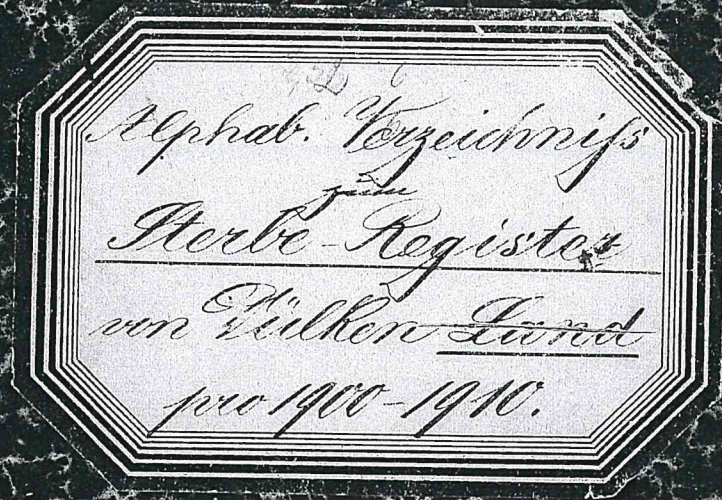 Alphab. Verzeichniss
zum
Sterbe-Register
von Dülken Land
pro 1900-1910.